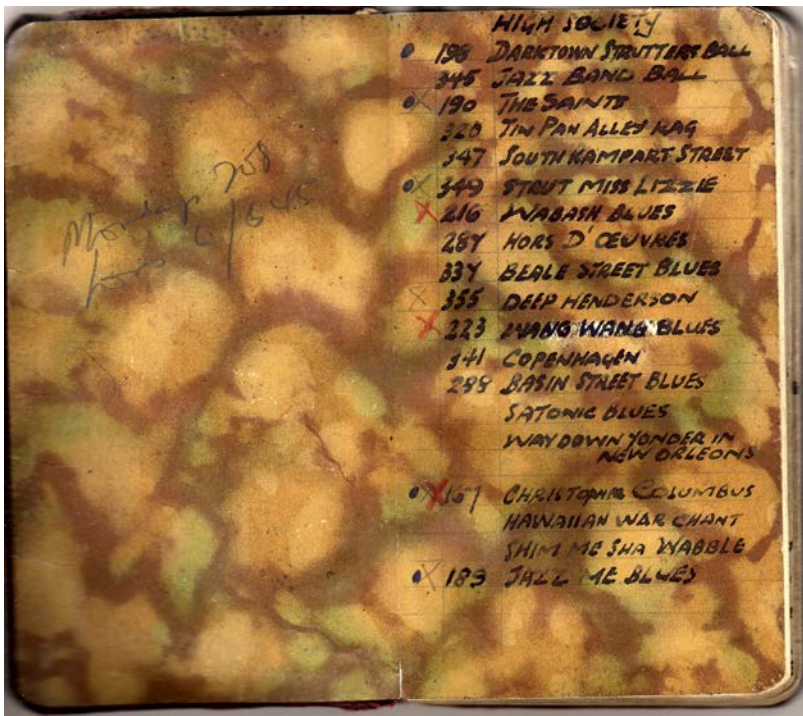 Monday
HIGH SOCIETY
196 DARKTOWN STRUTTERS BALL
345 JAZZ BAND BALL
X 190 THE SAINTS
320 TIN PAN ALLEY RAG
347 SOUTH RAMPART STREET
X 349 STRUT MISS LIZZIE
X 216 WABASH BLUES
287 HORS D'ŒUVRES
337 BEALE STREET BLUES
X 355 DEEP HENDERSON
X 223 WANG WANG BLUES
341 COPENHAGEN
288 BASIN STREET BLUES
SATONIC BLUES
WAY DOWN YONDER IN
NEW ORLEONS
XX 167 CHRISTOPHER COLUMBUS
HAWAIIAN WAR CHANT
SHIM ME SHA WABBLE
X 189 JAZZ ME BLUES